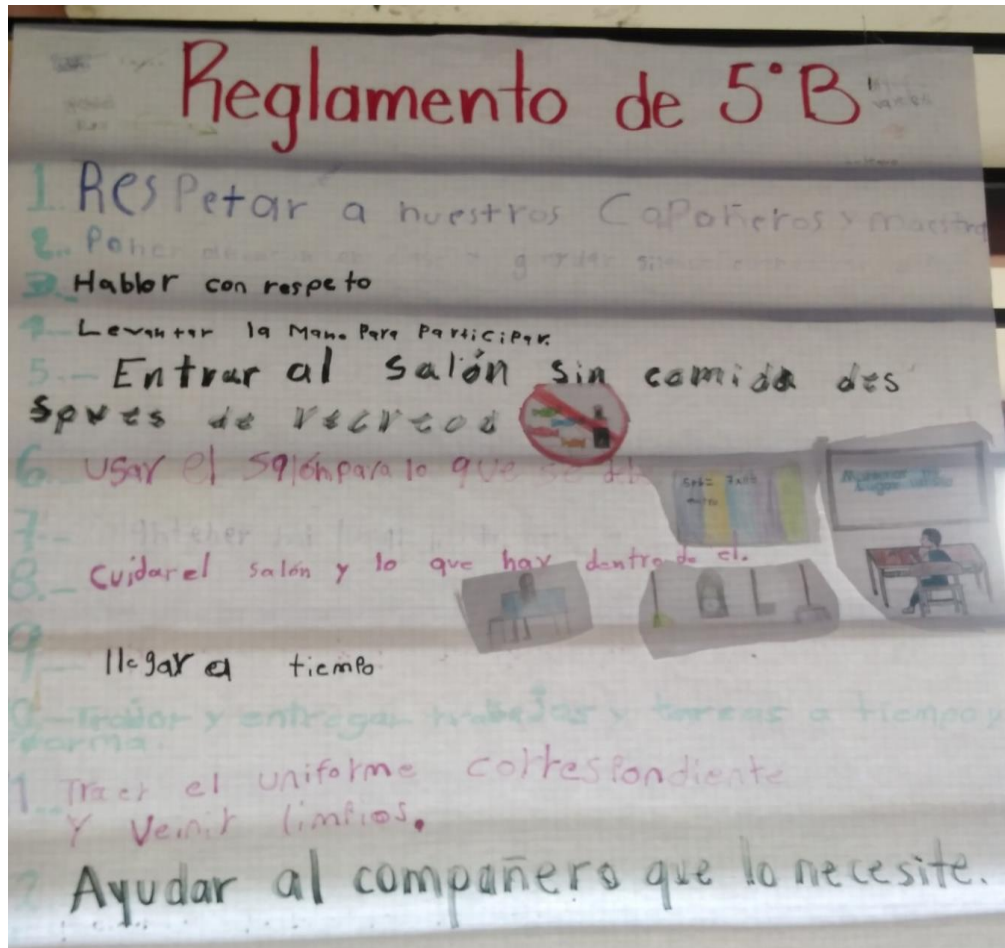 Reglamento de 5°B
1. Respetar a nuestros Capoñeros y maestros
2.. Poner guardar
3.- Hablar con respeto
4- Levantar la Mano Para Participar.
5.- Entrar al salón sin comida des
spues de recreo
6. Usar el salón para lo que se
7.-
8.- Cuidar el salón y lo que hay dentro de el.
9- llegar a tiempo
0.- y entregar trabajos y tareas a tiempo y
forma.
1.. Traer el uniforme correspondiente
Y Venir limpios.
2 Ayudar al compañero que lo necesite.